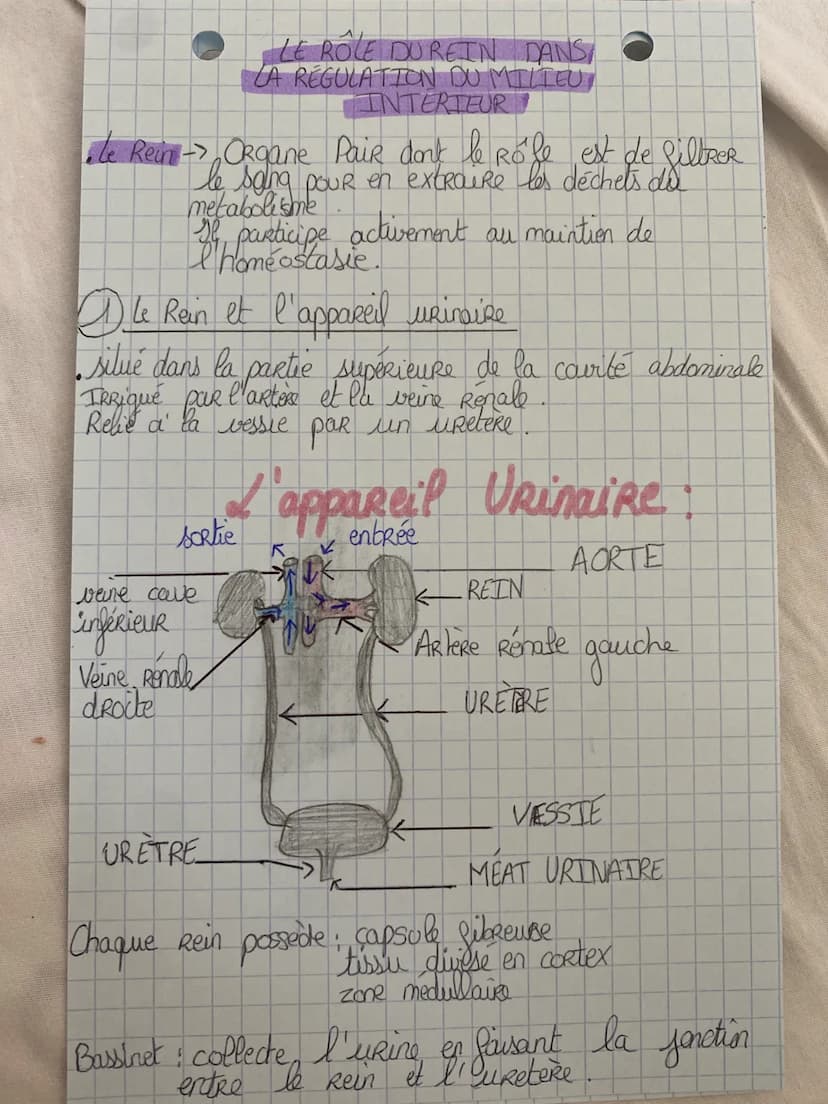 LE RÔLE DU REIN DANS
LA RÉGULATION DU MILIEU
INTERIEUR
. Le Rein -> Organe Pair dont le Rôle est de filtrer
le sang pour en extraire les déchets du
metabolisme.
Il participe activement au maintien de
l'homéostasie.
1) Le Rein et l'appareil urinaire
. situé dans la partie supérieure de la cavité abdominale
Irrigué par l'artère et la veine Rénale.
Relié à la vessie par un uretère.
L'appareil Urinaire :
sortie entrée
AORTE
veine cave
inférieur
REIN
Artère Rénale gauche
Veine Rénale
droite
URÈTRE
VESSIE
URÈTRE
MÉAT URINAIRE
Chaque Rein possède : capsule fibreuse
tissu divisé en cortex
zone médullaire
Bassinet : collecte l'urine en faisant la jonction
entre le rein et l'uretère.